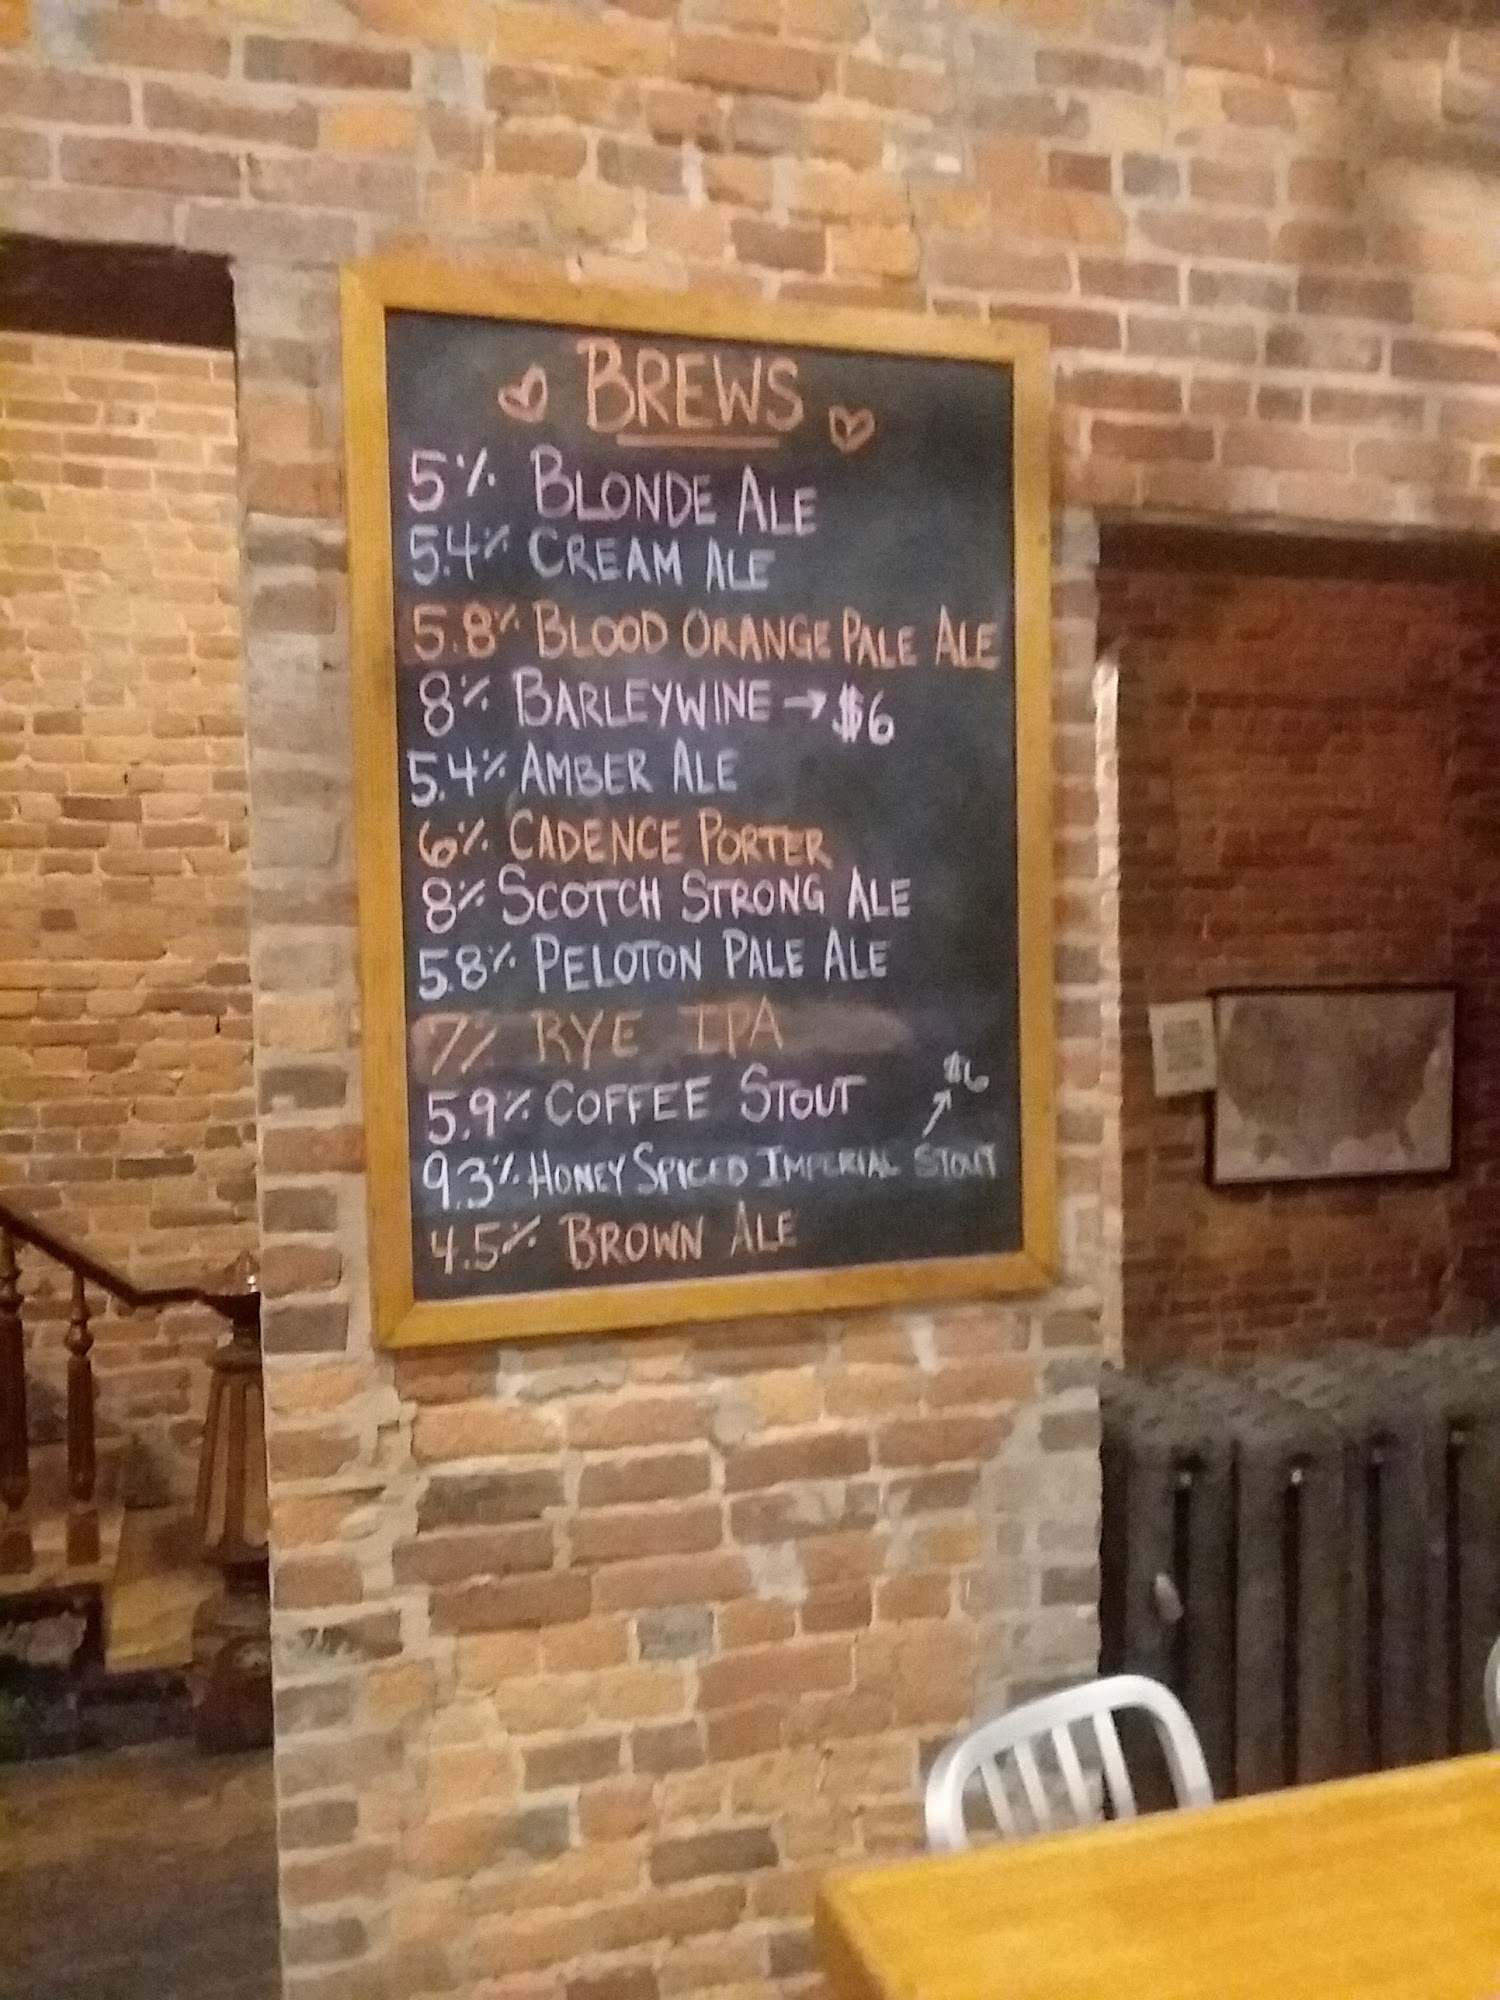 BREWS
5% BLONDE ALE
5.4% CREAM ALE
5.8% BLOOD ORANGE PALE ALE
8% BARLEYWINE → $6
5.4% AMBER ALE
6% CADENCE PORTER
8% SCOTCH STRONG ALE
5.8% PELOTON PALE ALE
7% RYE IPA
5.9% COFFEE STOUT
$6
9.3% HONEY SPICED IMPERIAL STOUT
4.5% BROWN ALE